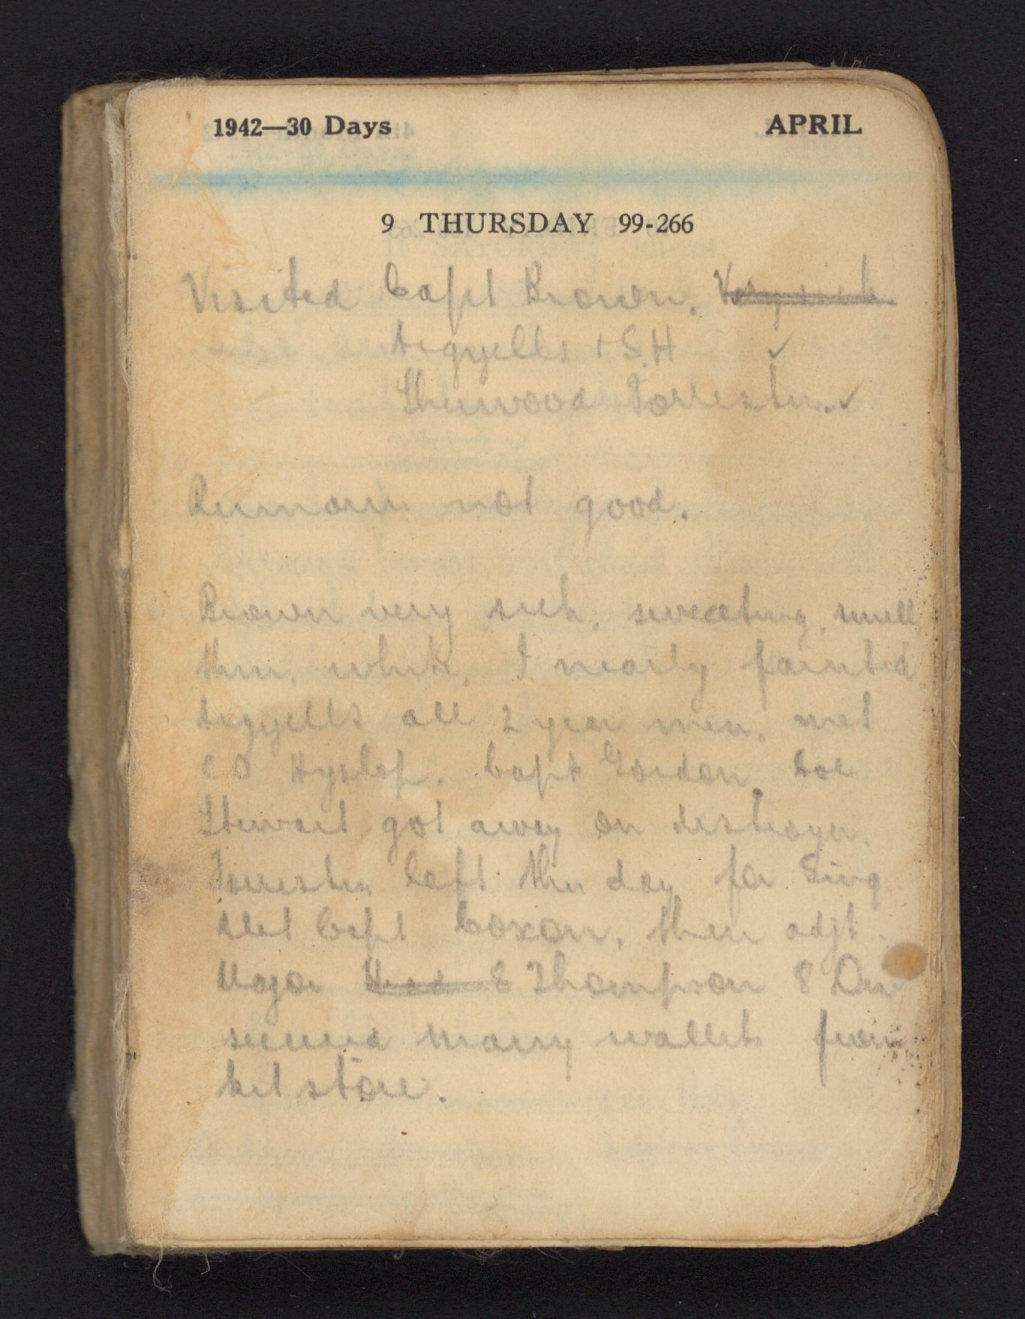 1942—30 Days APRIL
9 THURSDAY 99-266
Visited Capt Brown. Very sick
Argyells + S.H ✓
Sherwood Forresters. ✓
Rumours not good.
Brown very sick, sweating, smell
thin, white, I nearly fainted
Argyells all 2 year men, met
C O Hyslop. Capt Gordon, Col
Stewart got away on destroyer.
Forresters left this day for Sing
Met Capt Coxon, their adjt.
Major E Thompson 8 Div
secured many wallets from
kit store.